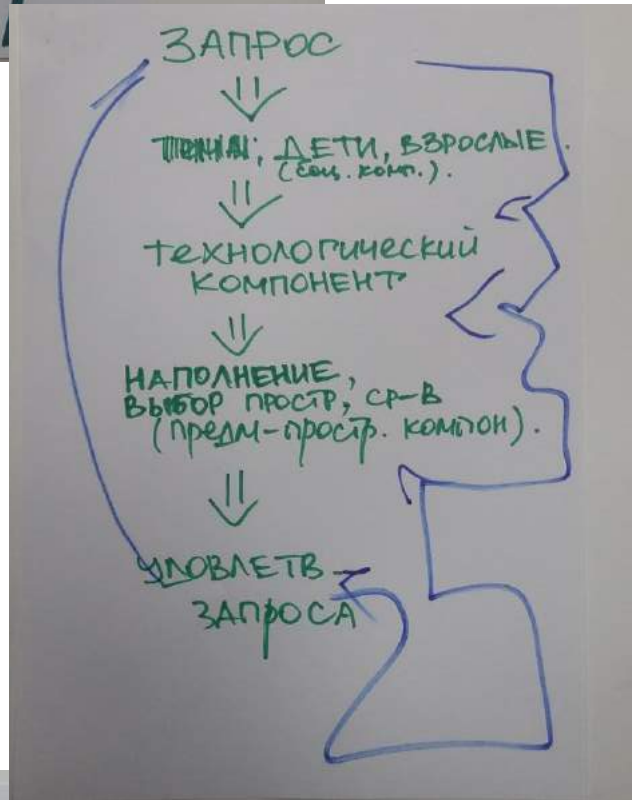 ЗАПРОС
, ДЕТИ, ВЗРОСЛЫЕ.
(соц. комп.).
ТЕХНОЛОГИЧЕСКИЙ
КОМПОНЕНТ
НАПОЛНЕНИЕ,
ВЫБОР ПРОСТР, СР-В
(предм-простр. компон).
УДОВЛЕТВ
ЗАПРОСА